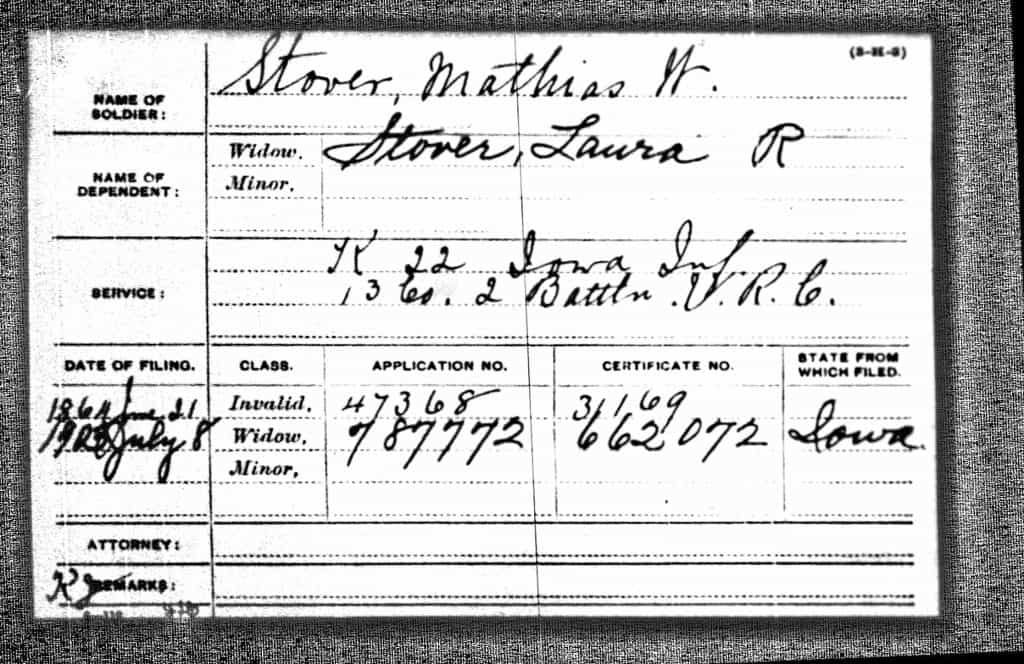 (3-2E-8)
NAME OF SOLDIER: Stover, Mathias W.
NAME OF DEPENDENT: Widow. Stover, Laura R
Minor.
SERVICE: K 22 Iowa Inf.
13 Co. 2 Battln V.R.C.
DATE OF FILING. CLASS. APPLICATION NO. CERTIFICATE NO. STATE FROM WHICH FILED.
1864 June 21 Invalid. 47368 31169
July 8 Widow. 787772 662072 Iowa
Minor.
ATTORNEY:
REMARKS: